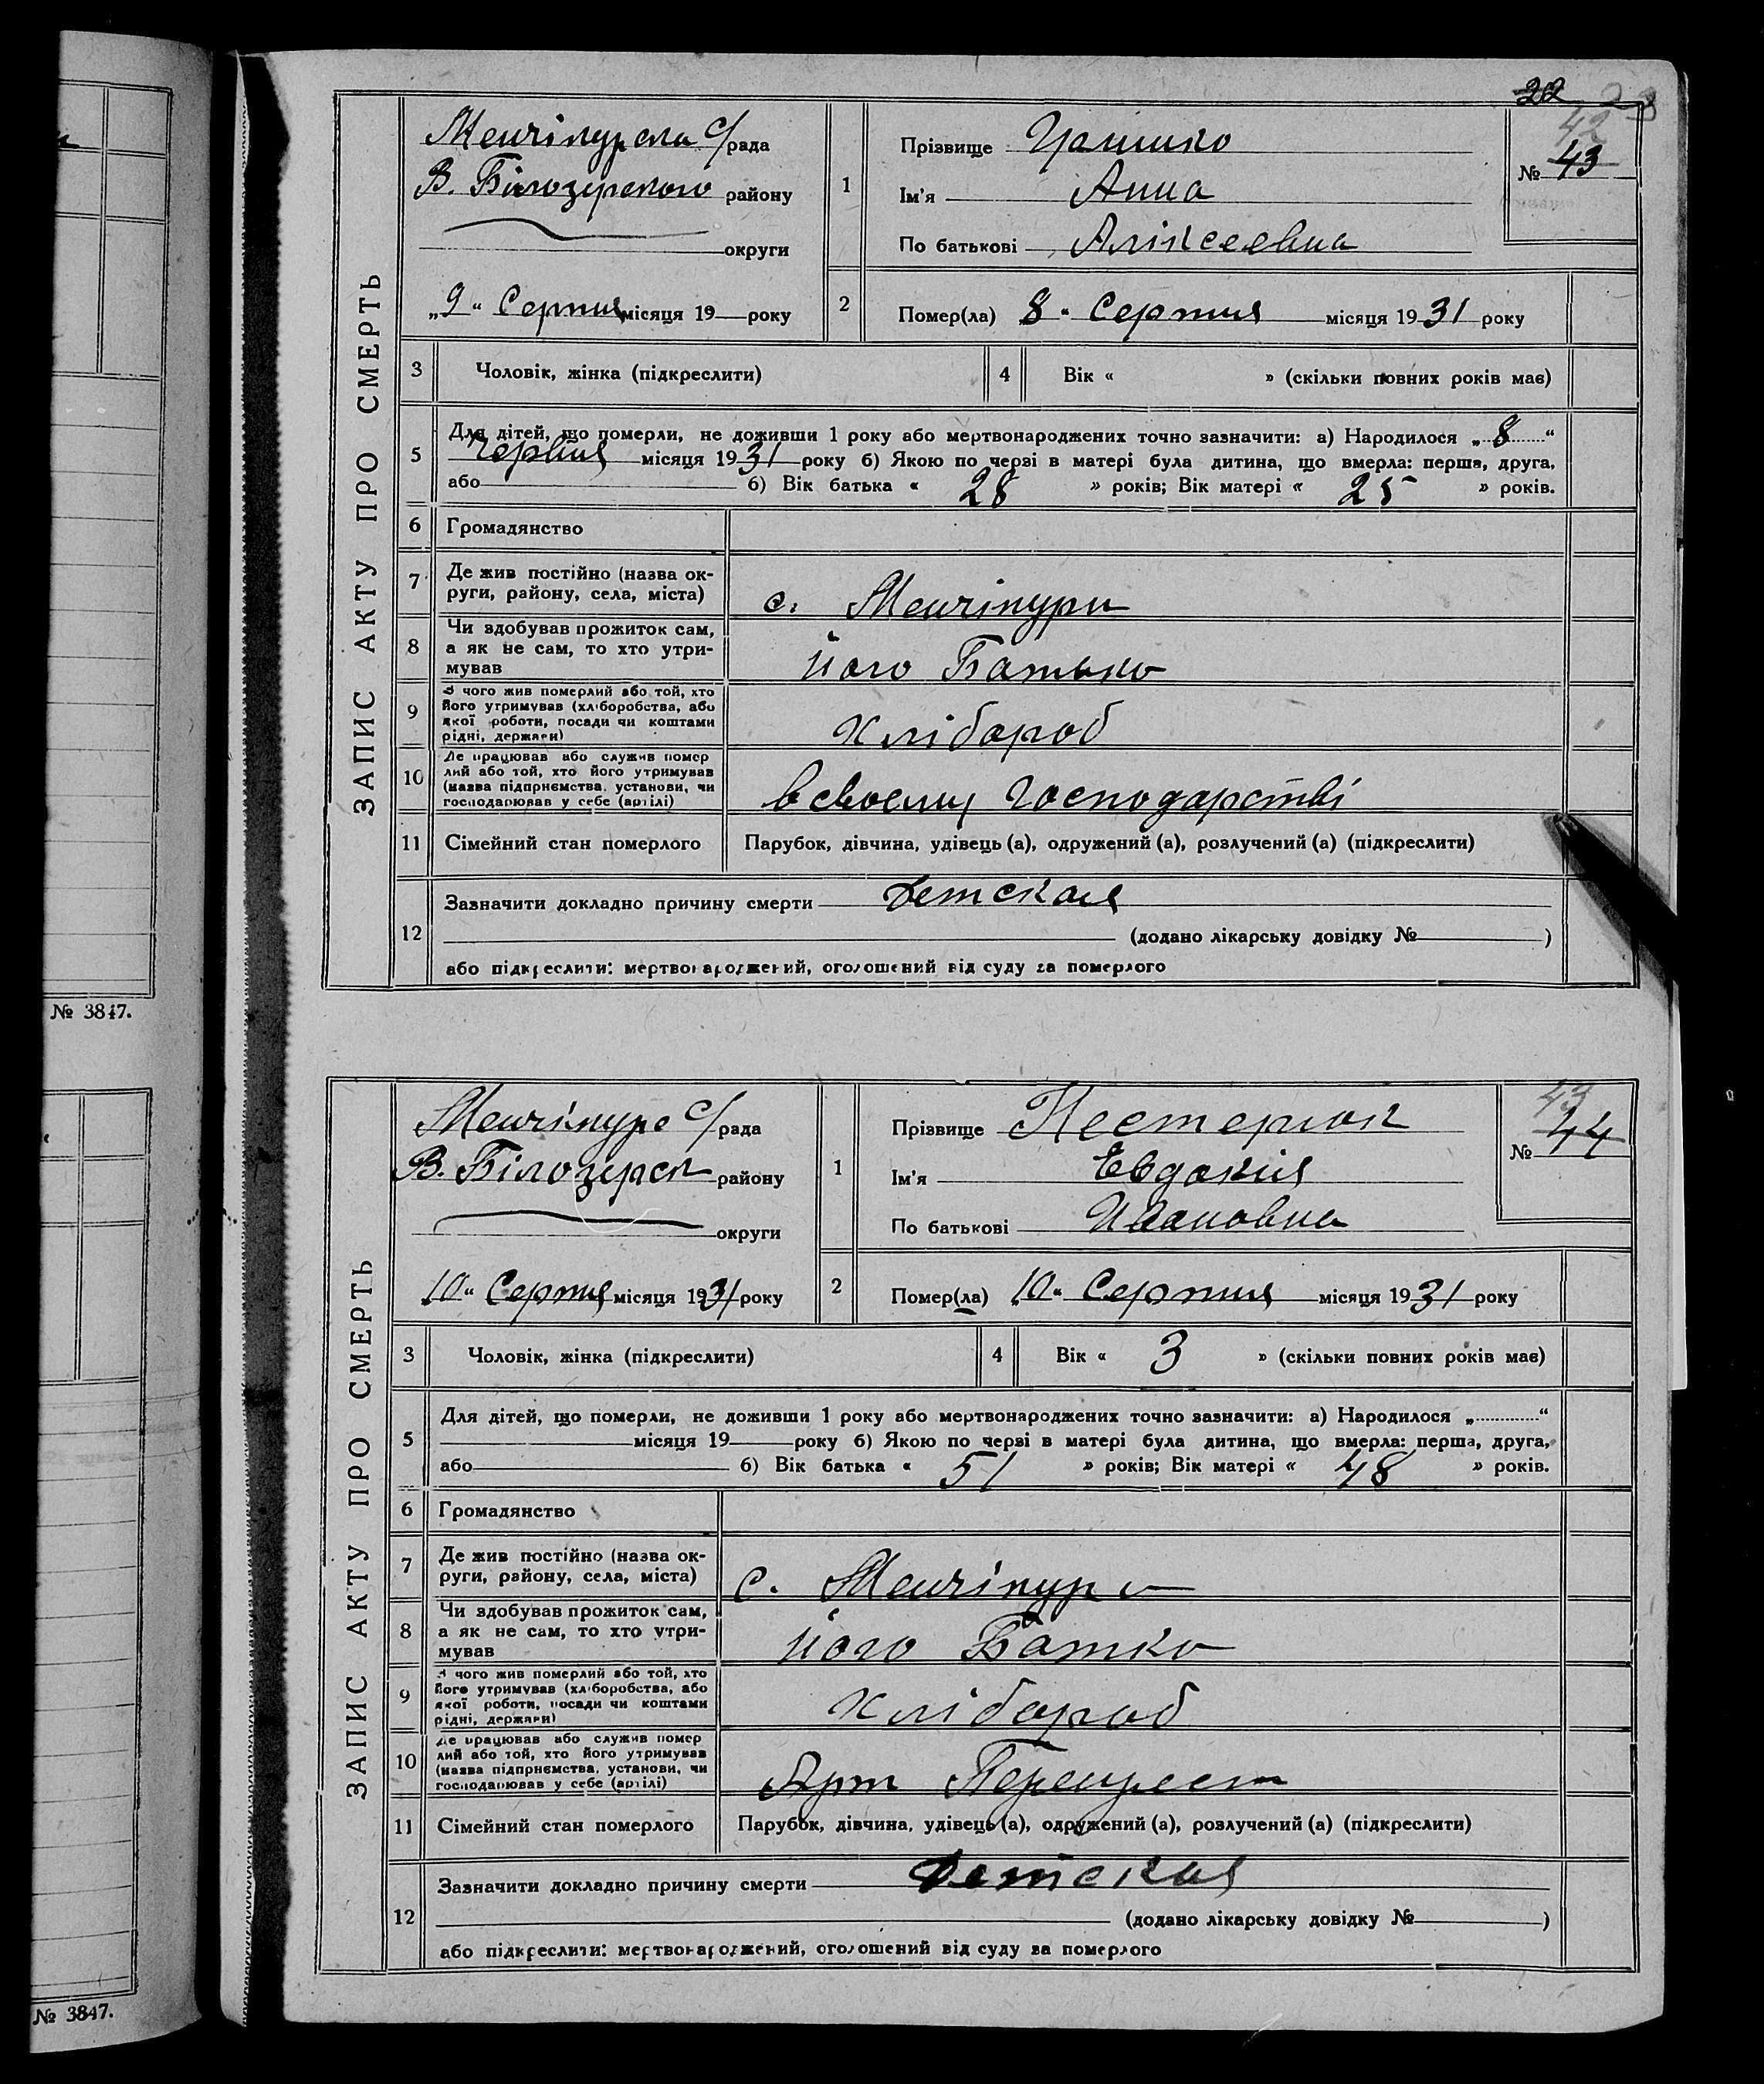 22 23
42
№ 43
ЗАПИС АКТУ ПРО СМЕРТЬ
Менчікурска С/рада
В. Білозерського району
округи
„9“ Серпня місяця 19 року
1
Прізвище
Ім'я Анна
По батькові Аліксеевна
2
Помер(ла) 8“ Серпня місяця 1931 року
3 Чоловік, жінка (підкреслити)
4 Вік « » (скільки повних років має)
5 Для дітей, що померли, не доживши 1 року або мертвонароджених точно зазначити: а) Народилося „8“
Червня місяця 1931 року б) Якою по черзі в матері була дитина, що вмерла: перша, друга,
або б) Вік батька « 28 » років; Вік матері « 25 » років.
6 Громадянство
7 Де жив постійно (назва ок-
руги, району, села, міста)
с. Менчікури
8 Чи здобував прожиток сам,
а як не сам, то хто утри-
мував
його Батько
9 З чого жив померлий або той, хто
його утримував (хліборобства, або
якої роботи, посади чи коштами
рідні, держави)
Хлібороб
10 Де працював або служив помер
лий або той, хто його утримував
(назва підприємства, установи, чи
господарював у себе (артілі)
в своєму господарстві
11 Сімейний стан померлого
Парубок, дівчина, удівець (а), одружений (а), розлучений (а) (підкреслити)
12 Зазначити докладно причину смерти Детская
(додано лікарську довідку № )
або підкреслити: мертвонароджений, оголошений від суду за померлого
43
№ 44
ЗАПИС АКТУ ПРО СМЕРТЬ
Менчікурс С/рада
В. Білозерск району
округи
10“ Серпня місяця 1931 року
1
Прізвище Нестерюк
Ім'я Евдокия
По батькові Ивановна
2
Помер(ла) „10“ Серпня місяця 1931 року
3 Чоловік, жінка (підкреслити)
4 Вік « 3 » (скільки повних років має)
5 Для дітей, що померли, не доживши 1 року або мертвонароджених точно зазначити: а) Народилося „ “
місяця 19 року б) Якою по черзі в матері була дитина, що вмерла: перша, друга,
або б) Вік батька « 51 » років; Вік матері « 48 » років.
6 Громадянство
7 Де жив постійно (назва ок-
руги, району, села, міста)
с. Менчікури
8 Чи здобував прожиток сам,
а як не сам, то хто утри-
мував
його Батко
9 З чого жив померлий або той, хто
його утримував (хліборобства, або
якої роботи, посади чи коштами
рідні, держави)
Хлібороб
10 Де працював або служив помер
лий або той, хто його утримував
(назва підприємства, установи, чи
господарював у себе (артілі)
Арт
11 Сімейний стан померлого
Парубок, дівчина, удівець (а), одружений (а), розлучений (а) (підкреслити)
12 Зазначити докладно причину смерти Детская
(додано лікарську довідку № )
або підкреслити: мертвонароджений, оголошений від суду за померлого
№ 3847.
№ 3847.